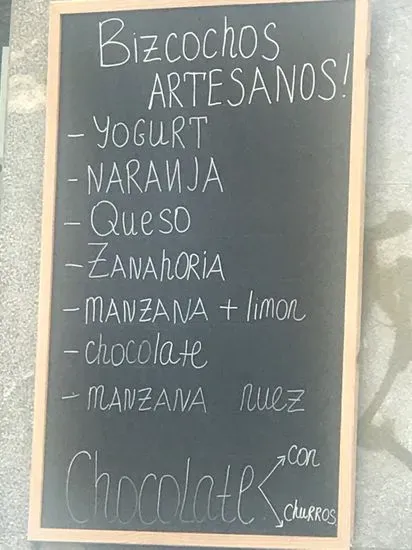 Bizcochos
ARTESANOS!
- YOGURT
- NARANJA
- Queso
- ZANAHORIA
- MANZANA + limon
- chocolate
- MANZANA nuez
Chocolate con
churros